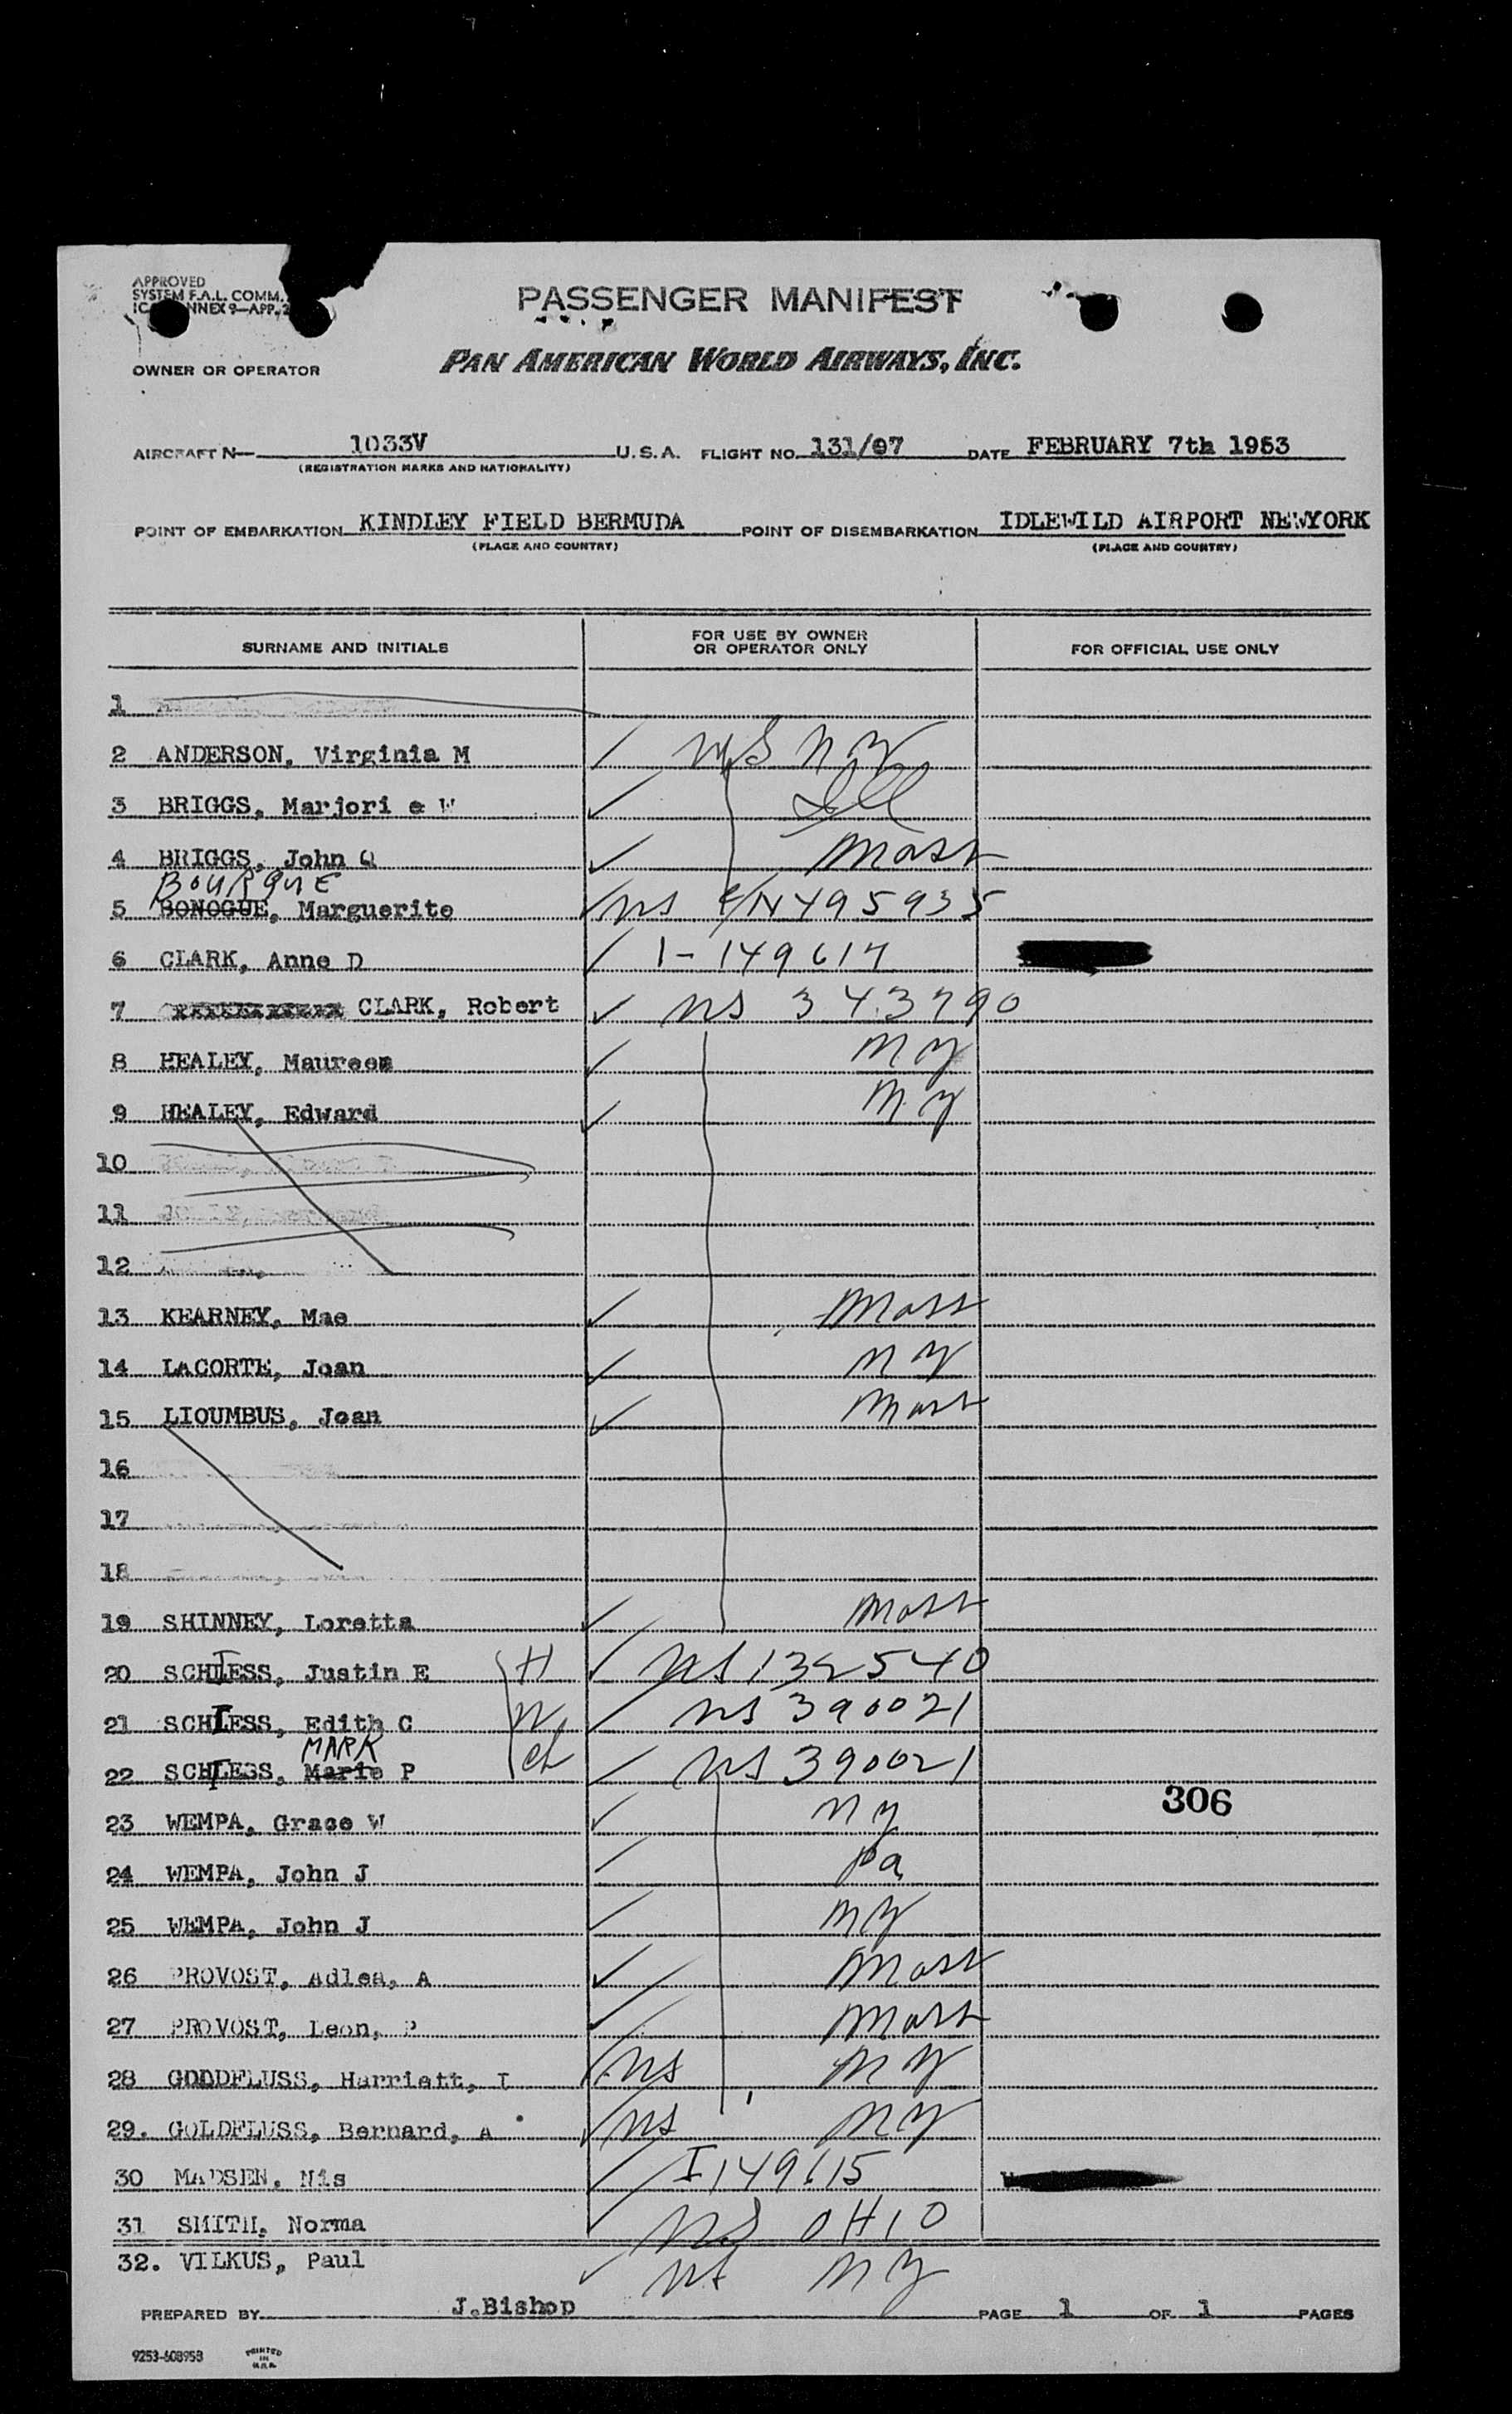 APPROVED
SYSTEM F.A.L. COMM.
ANNEX 9—APP. 2
PASSENGER MANIFEST
OWNER OR OPERATOR PAN AMERICAN WORLD AIRWAYS, INC.
AIRCRAFT N— 1033V U.S.A. FLIGHT NO. 131/07 DATE FEBRUARY 7th 1953
(REGISTRATION MARKS AND NATIONALITY)
POINT OF EMBARKATION KINDLEY FIELD BERMUDA POINT OF DISEMBARKATION IDLEWILD AIRPORT NEWYORK
(PLACE AND COUNTRY) (PLACE AND COUNTRY)
SURNAME AND INITIALS FOR USE BY OWNER OR OPERATOR ONLY FOR OFFICIAL USE ONLY
1
2 ANDERSON, Virginia M NS NY
3 BRIGGS, Marjori e W Ill
4 BRIGGS, John Q Mass
BOURQUE
5 BONOGUE, Marguerite NS C/N495935
6 CLARK, Anne D 1-149617
7 CLARK, Robert NS 343790
8 HEALEY, Maureen NY
9 HEALEY, Edward NY
10
11
12
13 KEARNEY, Mae Mass
14 LACORTE, Joan NY
15 LIOUMBUS, Joan Mass
16
17
18
19 SHINNEY, Loretta Mass
20 SCHIESS, Justin E H NS 132540
21 SCHIESS, Edith C W NS 390021
MARK
22 SCHIESS, Marie P ch NS 390021
306
23 WEMPA, Grace W NY
24 WEMPA, John J Pa
25 WEMPA, John J NY
26 PROVOST, Adlea, A Mass
27 PROVOST, Leon, P Mass
28 GODDFLUSS, Harriett, I NS NY
29. GOLDFLUSS, Bernard, A NS NY
30 MADSEN, Nis I149615
31 SMITH, Norma NS OHIO
32. VILKUS, Paul NS NY
PREPARED BY J.Bishop PAGE 1 OF 1 PAGES
9253-608958 PRINTED IN U.S.A.